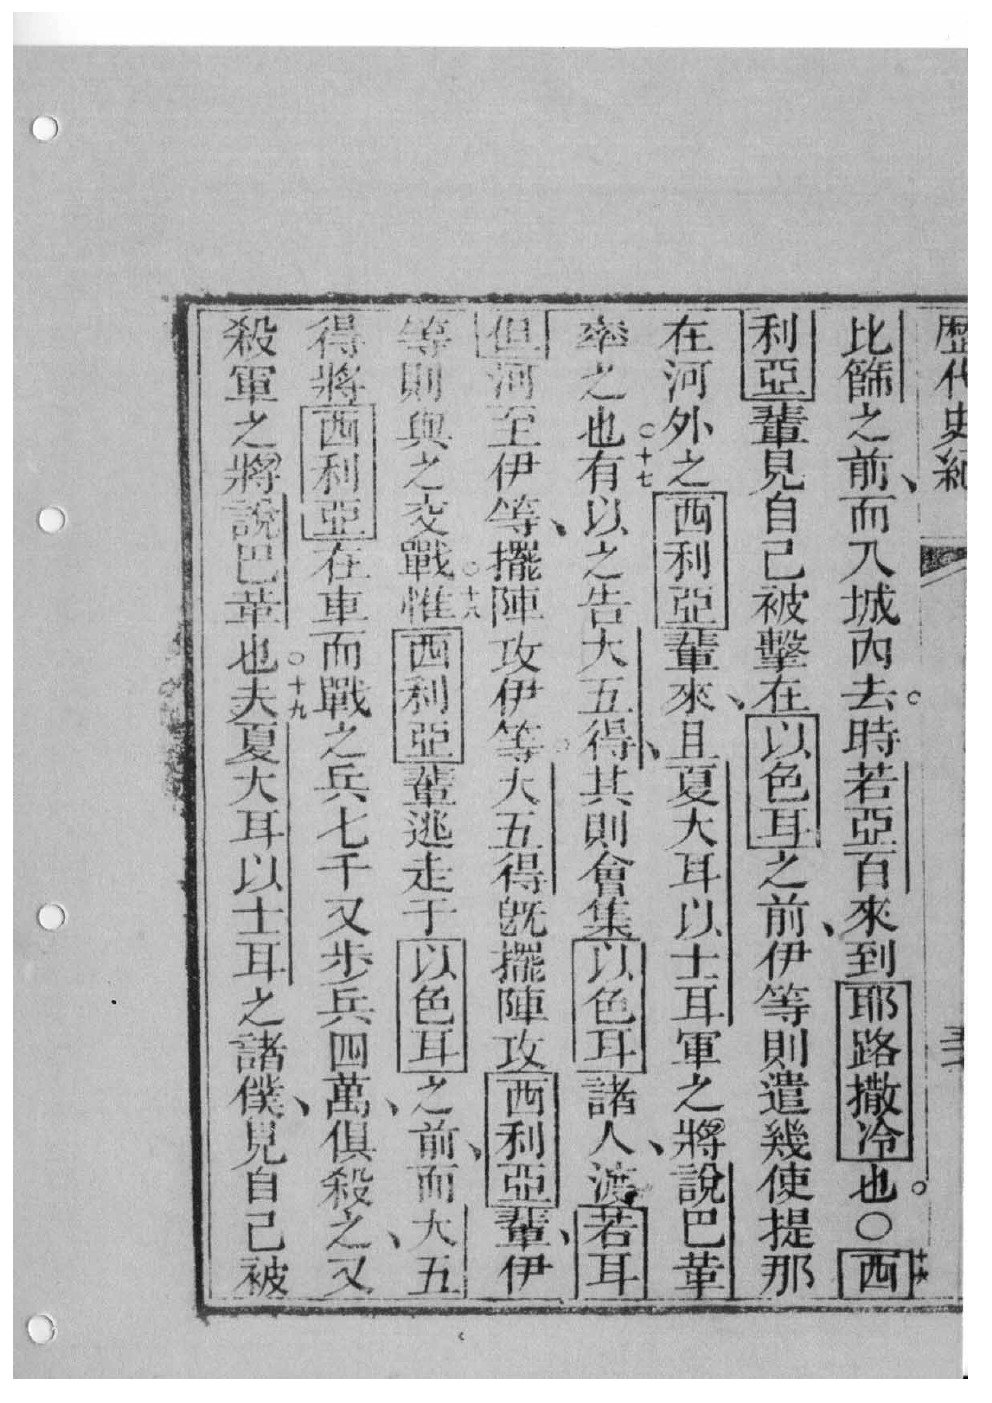 歷代史紀
比篩之前、而入城內去。時若亞百來到耶路撒冷也。〇十六西
利亞輩見自己被擊在以色耳之前、伊等則遣幾使提那
在河外之西利亞輩來、且夏大耳以士耳軍之將說巴革
率之也。十七有以之告大五得、其則會集以色耳諸人、渡若耳
但河至伊等、擺陣攻伊等。大五得既擺陣攻西利亞輩、伊
等則與之交戰。十八惟西利亞輩逃走于以色耳之前、而大五
得將西利亞在車而戰之兵七千又步兵四萬、俱殺之、又
殺軍之將說巴革也。十九夫夏大耳以士耳之諸僕、見自己被